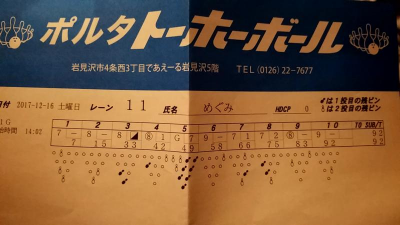 ポルタトーホーボール
岩見沢市4条西3丁目であえーる岩見沢5階 TEL(0126)22-7677
日付 2017-12-16 土曜日 レーン 11 氏名 めぐみ HDCP 0 は1投目の残ピン
は2投目の残ピン
1G
時間 14:02
1 2 3 4 5 6 7 8 9 10 TO SUB/T
7 15 33 42 49 58 66 75 83 92 92